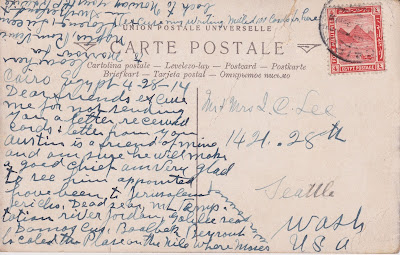 UNION POSTALE UNIVERSELLE
CARTE POSTALE
Cartolina postale - Levelezo-lap - Postcard - Postkarte
Briefkort - Tarjeta postal - Открытое письмо
EGYPT POSTAGE
Cairo Egypt 4-25-14
Dear friends excuse
me for not sending
you a letter, received
cards & letter from you
Austin is a friend of mine
and am sure he will make
a good chief am very glad
to see him appointed
have been to Jerusalem
Jericho, Dead sea, Mt Temp-
tation river Jordan, Galilee sea
Damascus, Baalbek Beyrout
located the Place on the Nile where Moses
Mr & Mrs I. C. Lee
1421 - 28th
Seattle
Wash
USA